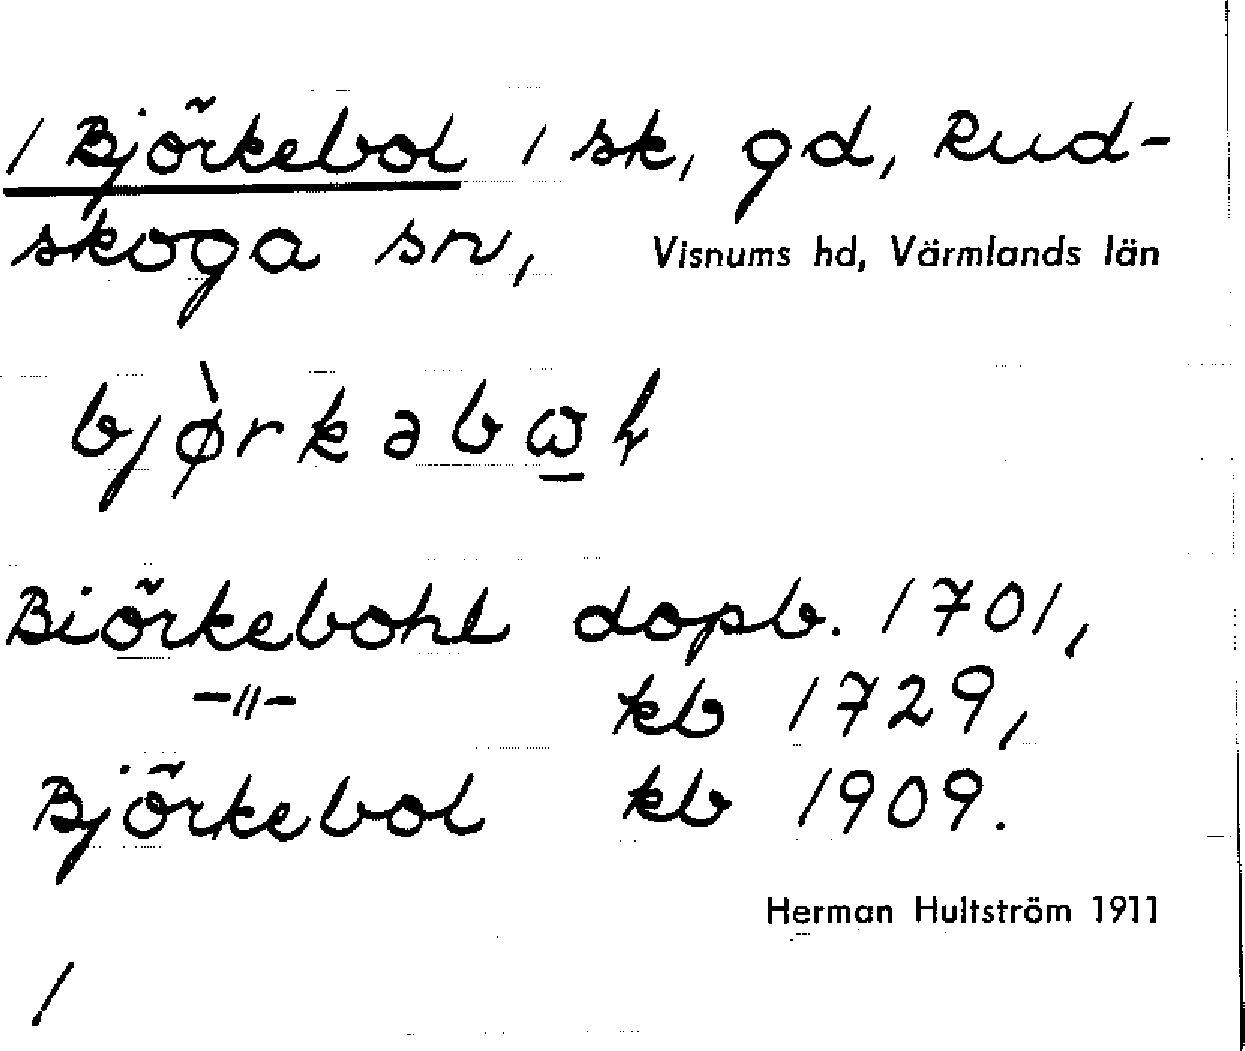 / Björkebol / sk, gd, Rud-
skoga sn, Visnums hd, Värmlands län
bjø̀rkəbɷ̱ɫ
Biörkebohl dopb. 1701,
-"- kb 1729,
Björkebol kb 1909.
Herman Hultström 1911
/